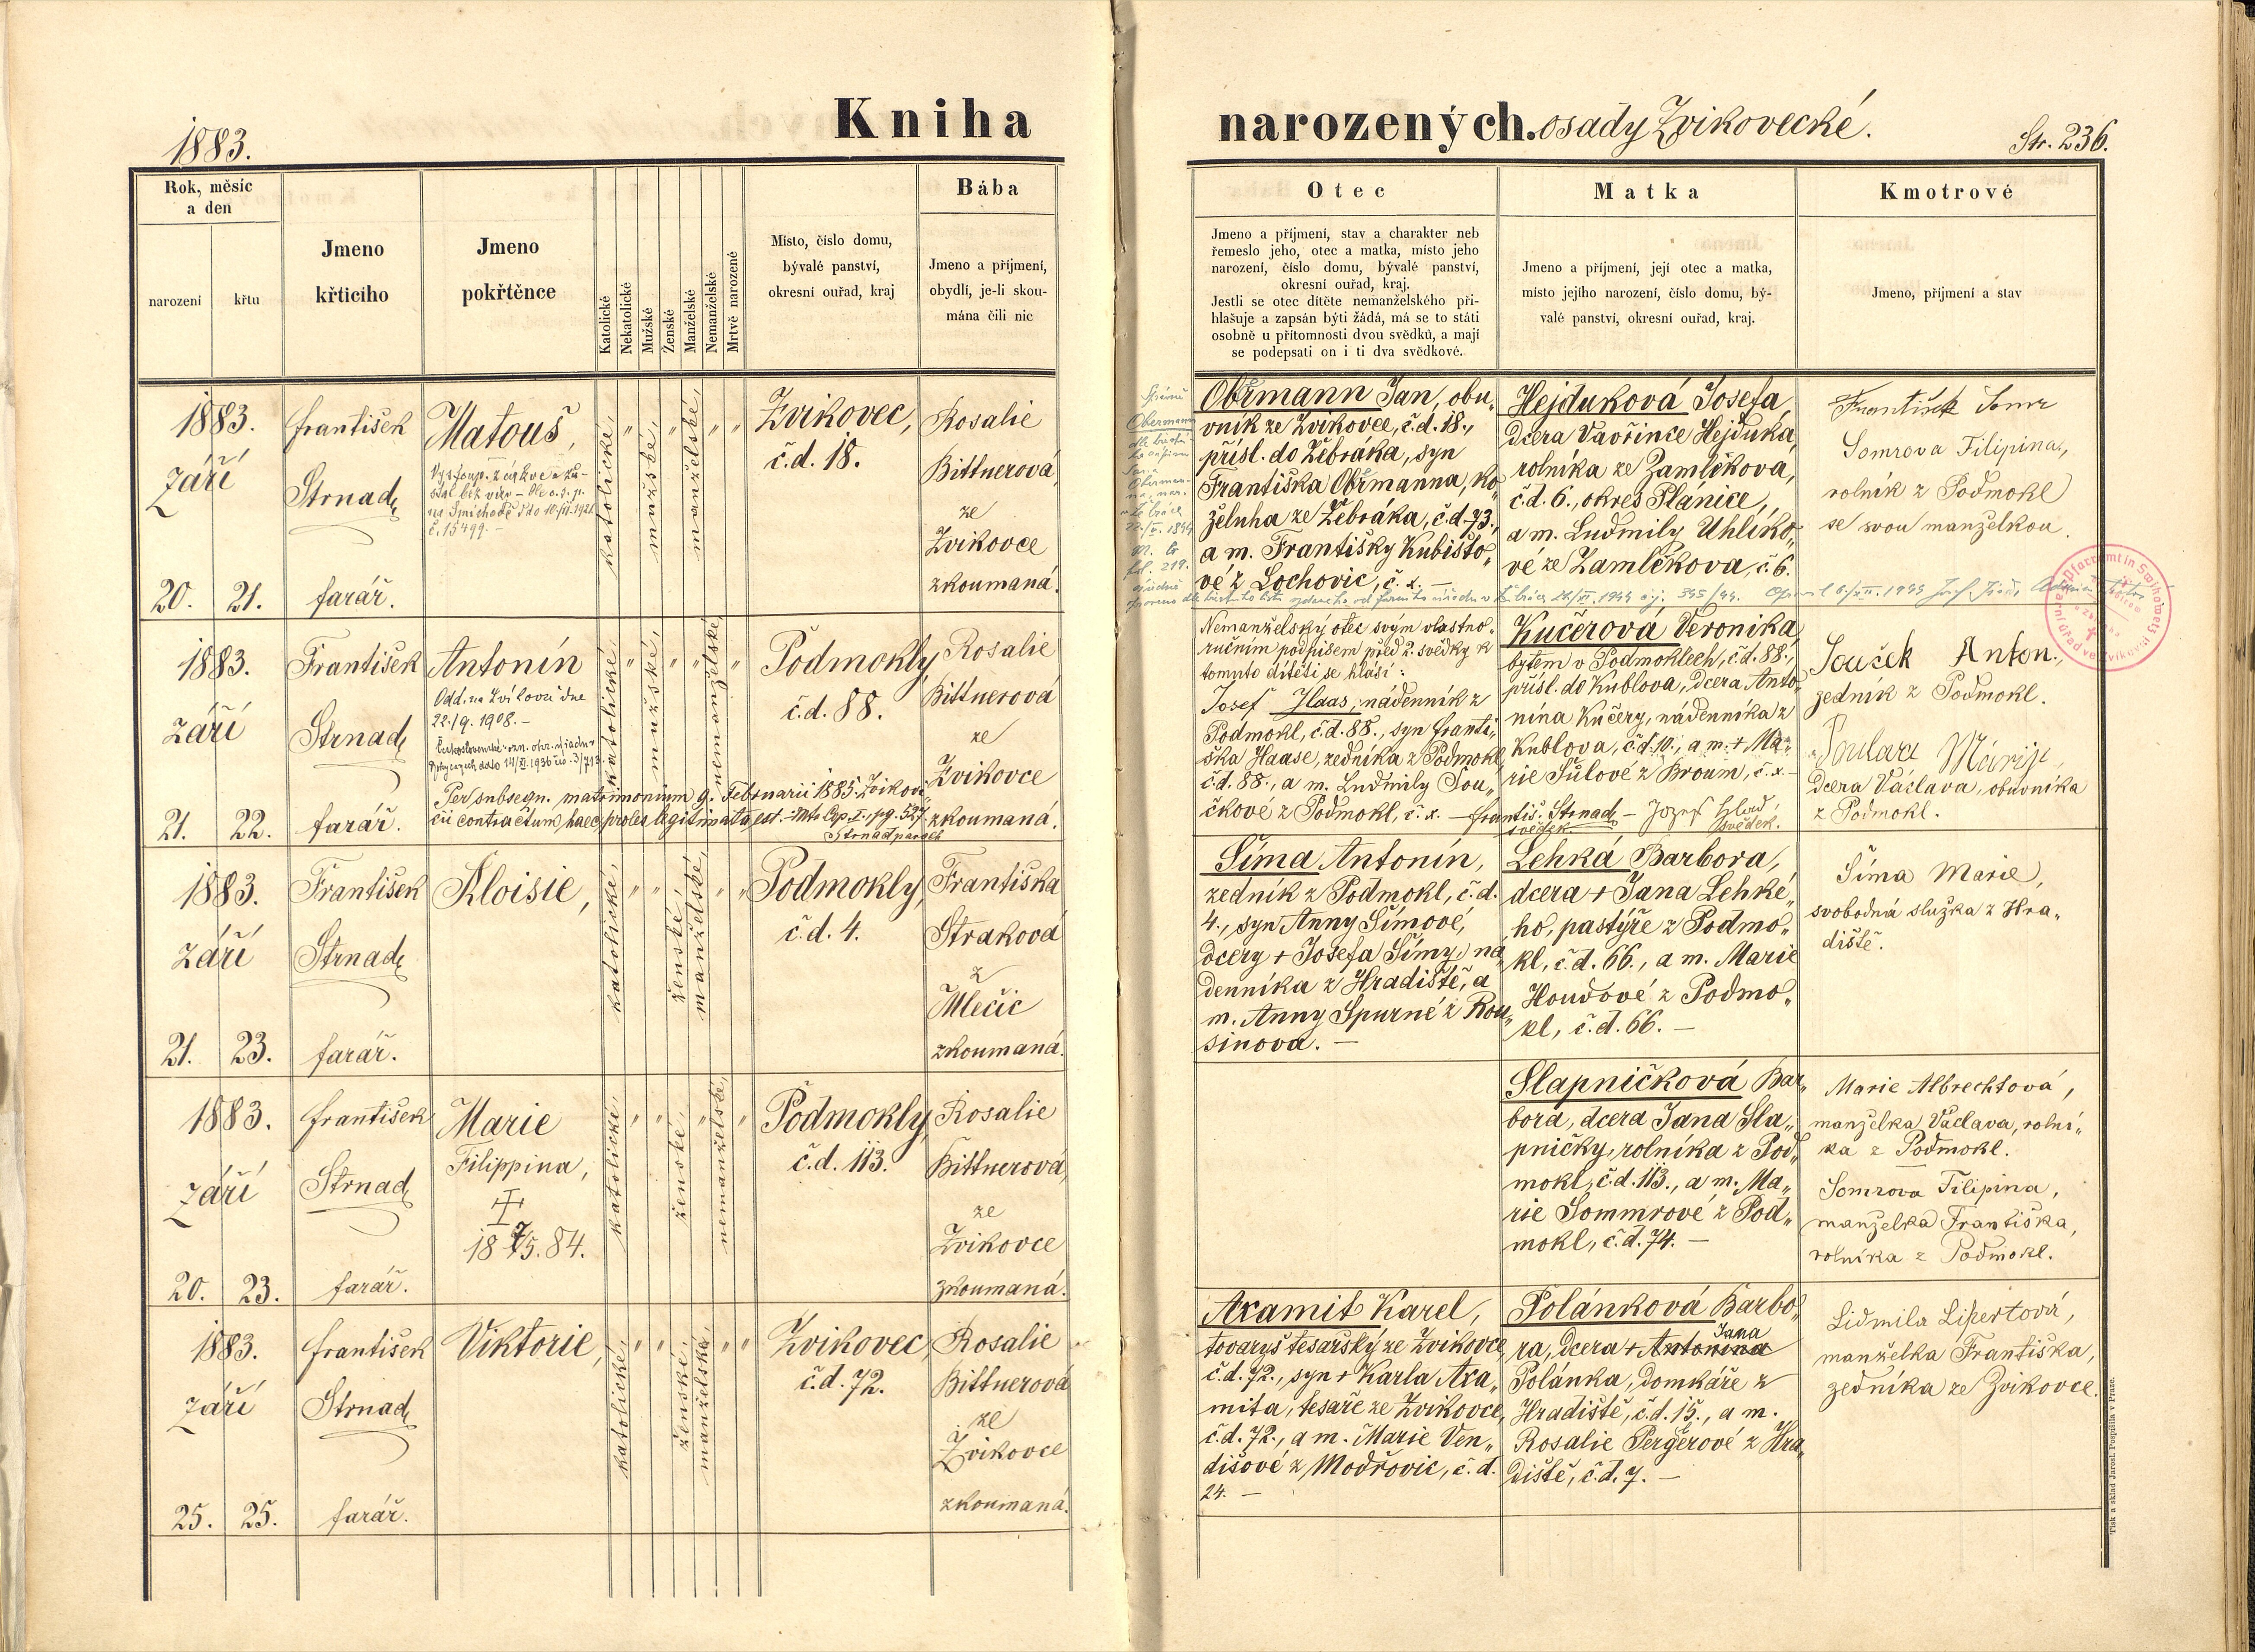 1883.
Kniha
narozených. osady Zvikovecké.
Str. 236.
Rok, měsíc
a den
narození
křtu
Jmeno
křticího
Jmeno
pokřtěnce
Katolické
Nekatolické
Mužské
Ženské
Manželské
Nemanželské
Mrtvě narozené
Místo, číslo domu,
bývalé panství,
okresní ouřad, kraj
Bába
Jmeno a příjmení,
obydlí, je-li skou-
mána čili nic
Otec
Jmeno a příjmení, stav a charakter neb
řemeslo jeho, otec a matka, místo jeho
narození, číslo domu, bývalé panství,
okresní ouřad, kraj.
Jestli se otec dítěte nemanželského při-
hlašuje a zapsán býti žádá, má se to státi
osobně u přítomnosti dvou svědků, a mají
se podepsati on i ti dva svědkové.
Matka
Jmeno a příjmení, její otec a matka,
místo jejího narození, číslo domu, bý-
valé panství, okresní ouřad, kraj.
Kmotrové
Jmeno, příjmení a stav
1883.
září
20. 21.
František
Strnad,
farář.
Matouš,
Vystoup. z církve a zů-
stal bez
na Smíchově
č. 15499. -
katolické,
mužské,
manželské,
Zvikovec,
č.d. 18.
Rosalie
Bittnerová,
ze
Zvikovce
zkoumaná.
Obermann
Obřmann Jan, obu„
vník ze Zvikovce, č.d. 18.,
přísl. do Žebráka, syn
Františka Obřmanna, ko„
želuha ze Žebráka, č.d. 73.,
a m. Františky Kubišto„
vé z Lochovic, č. x. —
Hejduková Josefa,
dcera Vavřince Hejduka,
rolníka ze Zamlčková,
č.d. 6., okres Plánice,
a m. Ludmily Uhlíko„
vé ze Zamlčkova, č. 6.
František Somr
Somrova Filipina,
rolník z Podmokl
se svou manželkou.
1883.
září
21. 22.
František
Strnad,
farář.
Antonín
Odd. na Zvíkovci dne
22./9. 1908. -
katolické
mužské,
nemanželské
Per subsequ. matrimonium 9. Februarii 1885. Zvikov„
cii contractum, haec proles legitimata est.
Strnad
Podmokly,
č.d. 88.
Rosalie
Bittnerová
ze
Zvikovce
zkoumaná.
Nemanželský otec svým vlastno„
ručním podpisem před 2. svědky k
tomuto dítěti se hlásí:
Josef Haas, nádenník z
Podmokl, č.d. 88., syn Franti„
ška Haase, zedníka z Podmokl
č.d. 88., a m. Ludmily Sou„
čkové z Podmokl, č. x. — Františ. Strnad, — Jozef Hlad,
svědek svědek.
Kučerová Veronika,
bytem v Podmoklech, č.d. 88.,
přísl. do Kublova, dcera Anto„
nína Kučery, nádenníka z
Kublova, č.d. 10., a m. + Ma„
rie Šulové z Broum, č. x. -
Souček Anton.,
zedník z Podmokl.
Márije,
dcera Václava, obuvníka
z Podmokl.
1883.
září
21. 23.
František
Strnad,
farář.
Aloisie,
katolické,
ženské,
manželské,
Podmokly,
č.d. 4.
Františka
Straková
z
Mlečic
zkoumaná.
Šíma Antonín,
zedník z Podmokl, č.d.
4., syn Anny Šímové,
dcery + Josefa Šímy, ná„
denníka z Hradiště, a
m. Anny Spurné z Rou„
sinova. —
Lehká Barbora,
dcera + Jana Lehké„
ho, pastýře z Podmo„
kl, č.d. 66., a m. Marie
Houdové z Podmo„
kl, č.d. 66. —
Šíma Marie,
svobodná služka z Hra„
diště.
1883.
září
20. 23.
František
Strnad,
farář.
Marie
Filippina,
18 7/5. 84.
katolické,
ženské,
nemanželské,
Podmokly,
č.d. 113.
Rosalie
Bittnerová,
ze
Zvikovce
zkoumaná.
Slapničková Bar„
bora, dcera Jana Sla„
pničky, rolníka z Pod„
mokl, č.d. 113., a m. Ma„
rie Sommrové z Pod„
mokl, č.d. 74. —
Marie Albrechtová,
manželka Václava, rolní„
ka z Podmokl.
Somrova Filipina,
manželka Františka,
rolníka z Podmokl.
1883.
září
25. 25.
František
Strnad,
farář.
Viktorie,
katolické,
ženské,
manželské,
Zvikovec,
č.d. 72.
Rosalie
Bittnerová
ze
Zvikovce
zkoumaná.
Axamit Karel,
tovaryš tesařský ze Zvikovce,
č.d. 72., syn + Karla Axa„
mita, tesaře ze Zvikovce,
č.d. 72., a m. Marie Ven„
dišové z Modřovic, č.d.
24. —
Polánková Barbo„
ra, dcera + Antonína Jana
Polánka, domkáře z
Hradiště, č.d. 15., a m.
Rosalie Pergerové z Hra„
diště, č.d. 7. —
Lidmila Lipertová,
manželka Františka,
zedníka ze Zvikovce.
Tisk a sklad Jarosl. Pospíšila v Praze.